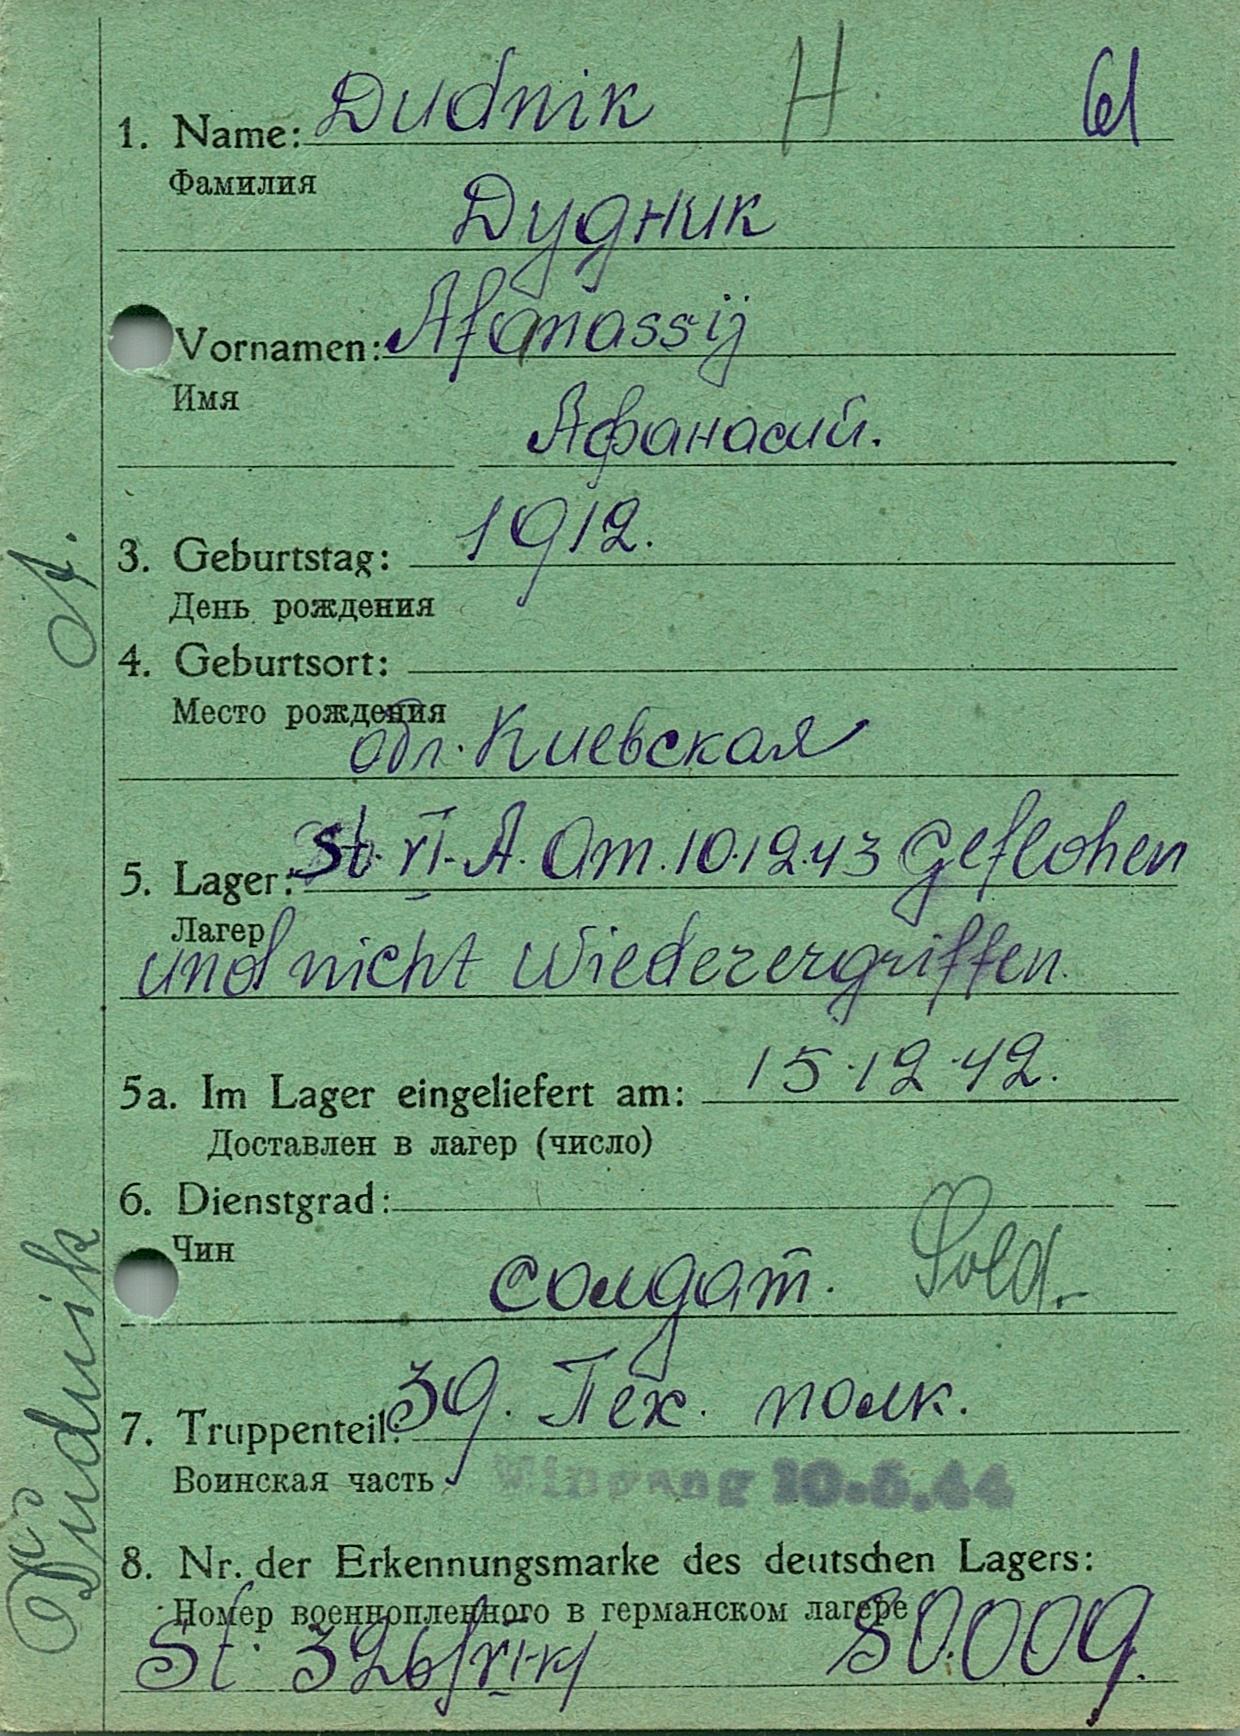 1. Name: Dudnik H. 61
Фамилия
Дудник
Vornamen: Afanassij
Имя
Афанасий.
3. Geburtstag: 1912.
День рождения
4. Geburtsort:
Место рождения
обл. Киевская
5. Lager: St. VI. A. Am. 10.12.43 Geflohen
Лагер
und nicht Wiederergriffen.
5a. Im Lager eingeliefert am: 15.12.42.
Доставлен в лагер (число)
6. Dienstgrad:
Чин
солдат. Sold.
7. Truppenteil: 39. Пех. полк.
Воинская часть
10.5.44
8. Nr. der Erkennungsmarke des deutschen Lagers:
Номер военнопленного в германском лагере
St. 326/VI-K/ 80.009.
Dudnik A.